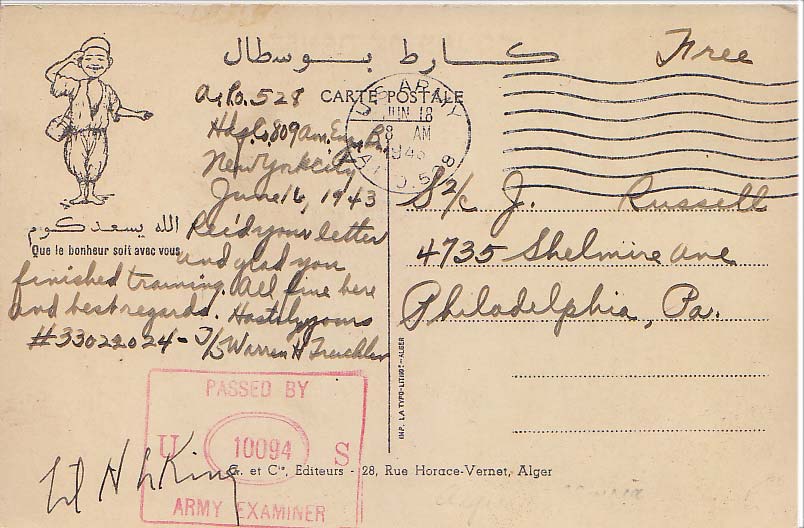 كارط بوسطال
Free
CARTE POSTALE
A.P.O. 528
Hdqs. 809 Avn. Eng. Bn.
New York City
June 16, 1943
Rec'd your letter
and glad you
finished training. All fine here
and best regards. Hastily yours
#33022024 - T/5 Warren H
U.S. ARMY
JUN 18
8 AM
1943
A.P.O. 528
S 2/c J. Russell
4735 Shelmire Ave
Philadelphia, Pa.
الله يسعدكوم
Que le bonheur soit avec vous
IMP. LA TYPO-LITHO - ALGER
PASSED BY
U 10094 S
ARMY EXAMINER
G. et Cie, Editeurs - 28, Rue Horace-Vernet, Alger
King